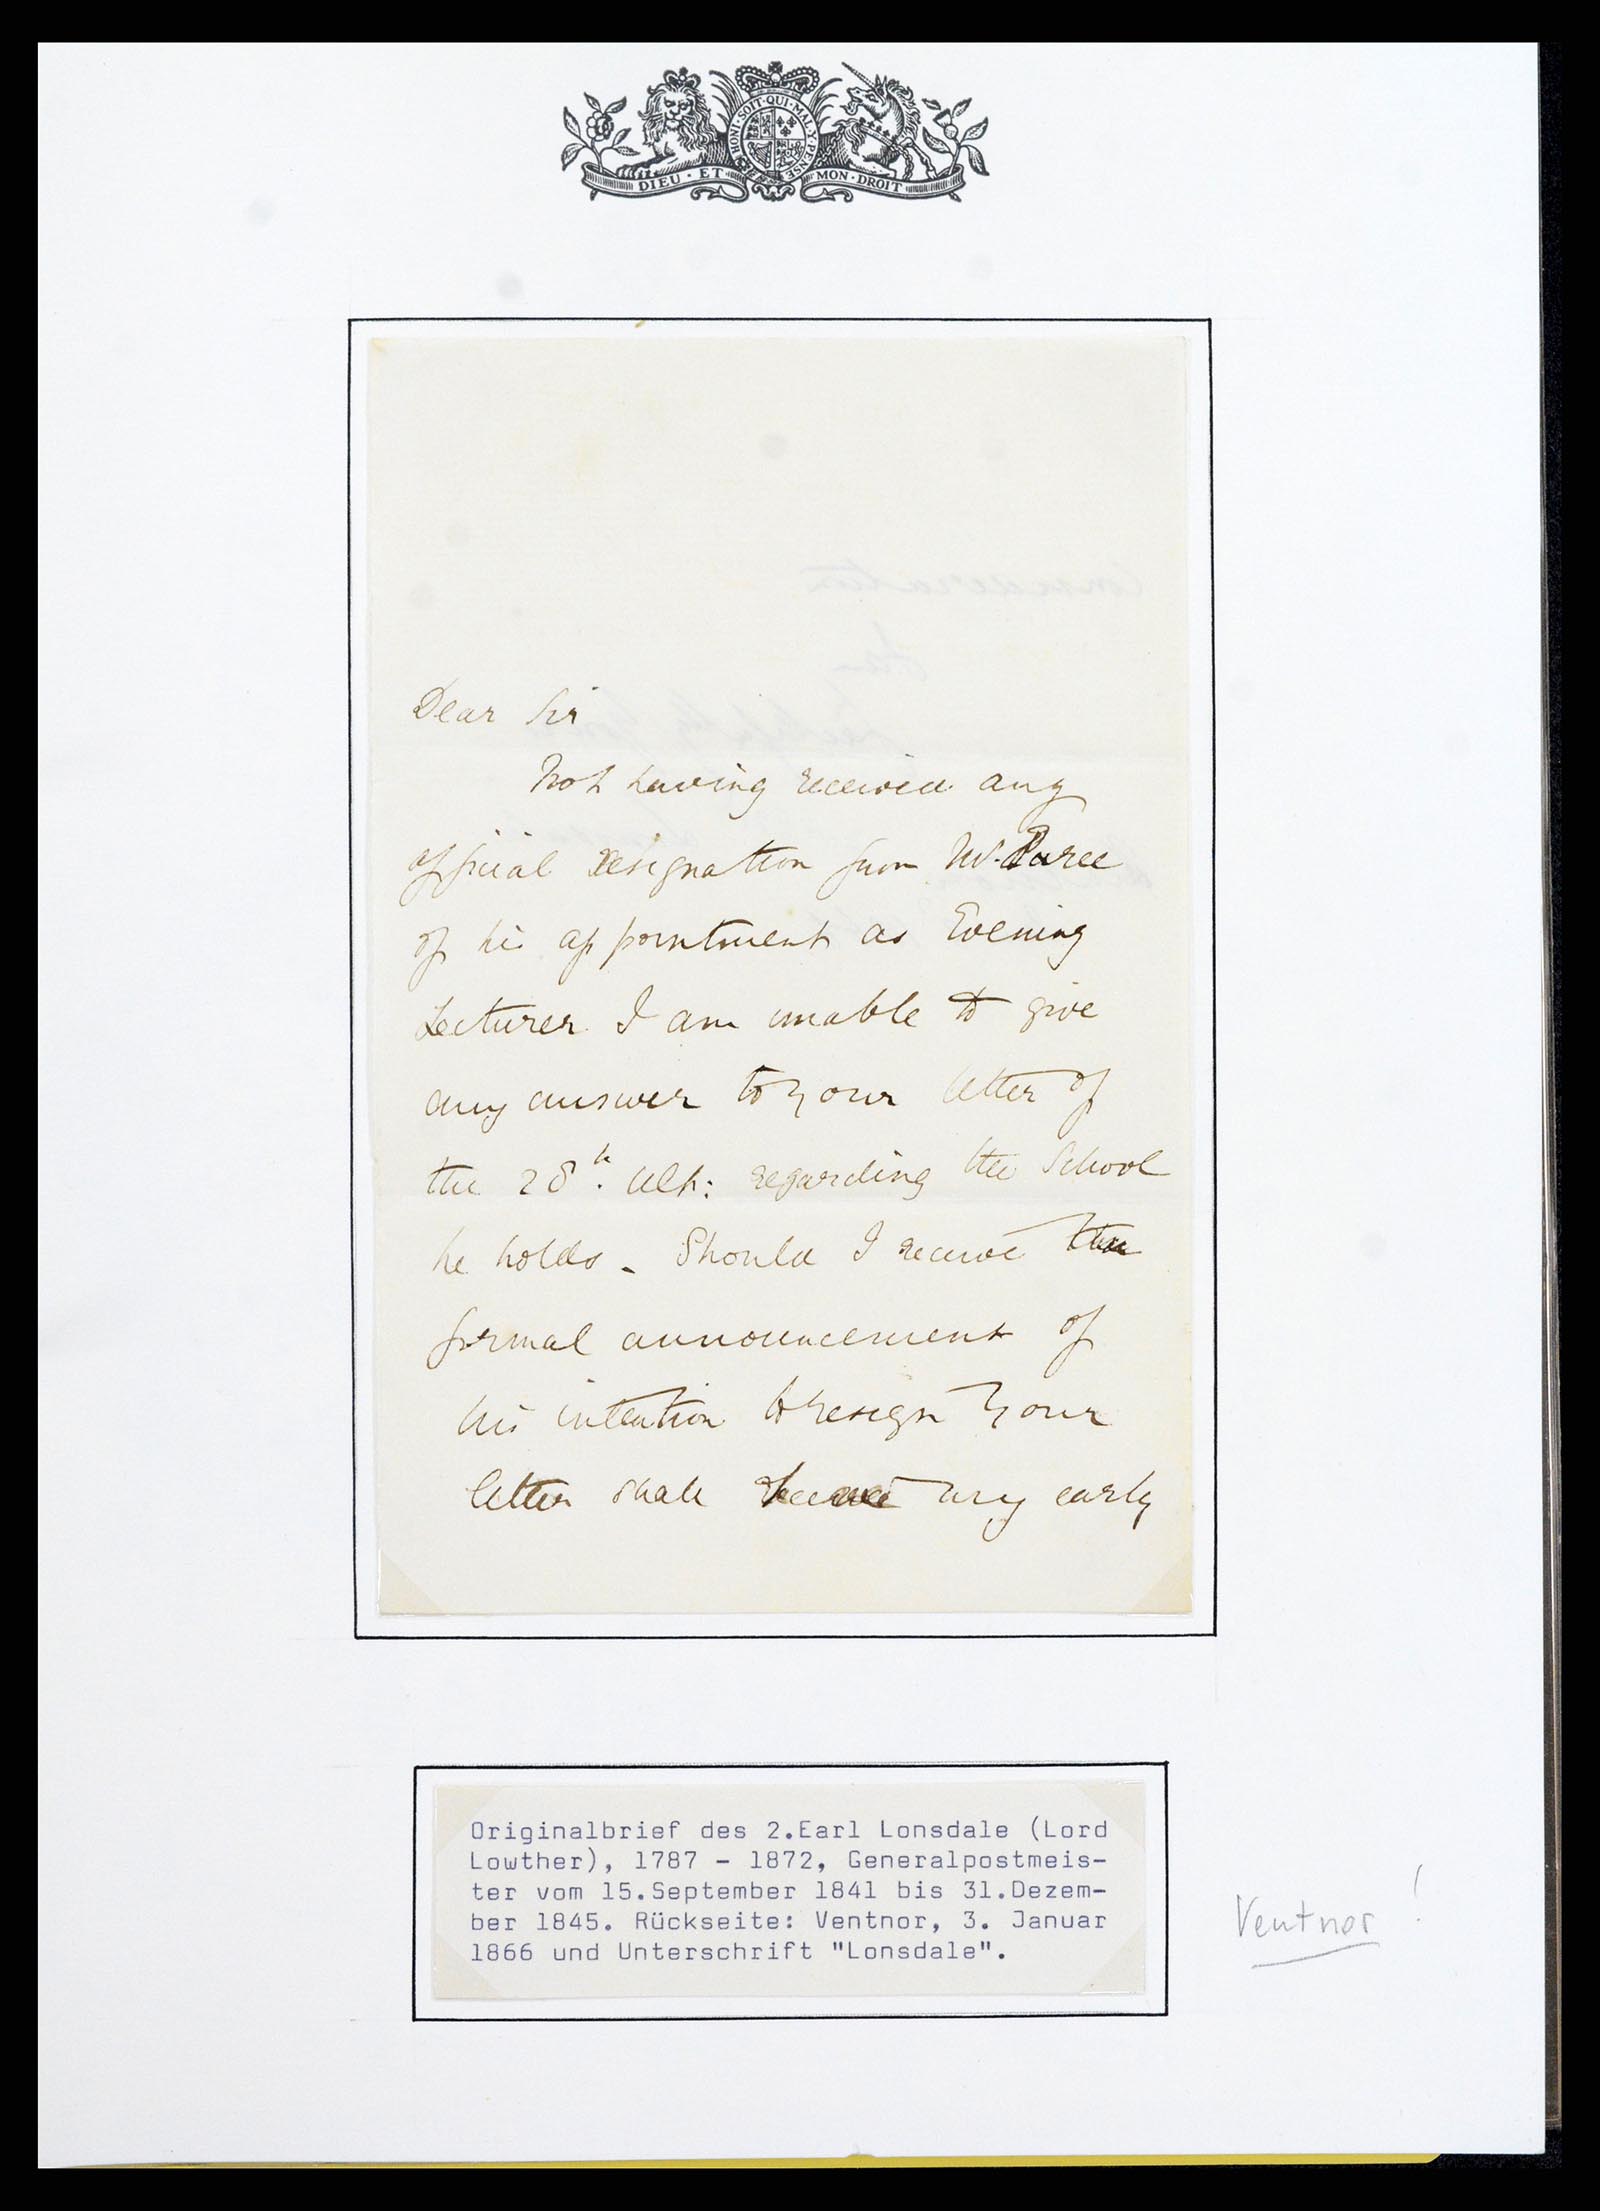 HONI · SOIT · QUI · MAL · Y · PENSE
DIEU · ET MON · DROIT
Dear Sir
Not having received any
official resignation from Mr.
of his appointment as Evening
Lecturer I am unable to give
any answer to your letter of
the 28th. ult: regarding the School
he holds. Should I receive the
formal announcement of
his intention to resign your
letter shall receive my early
Originalbrief des 2.Earl Lonsdale (Lord
Lowther), 1787 – 1872, Generalpostmeis-
ter vom 15.September 1841 bis 31.Dezem-
ber 1845. Rückseite: Ventnor, 3. Januar
1866 und Unterschrift "Lonsdale".
Ventnor !